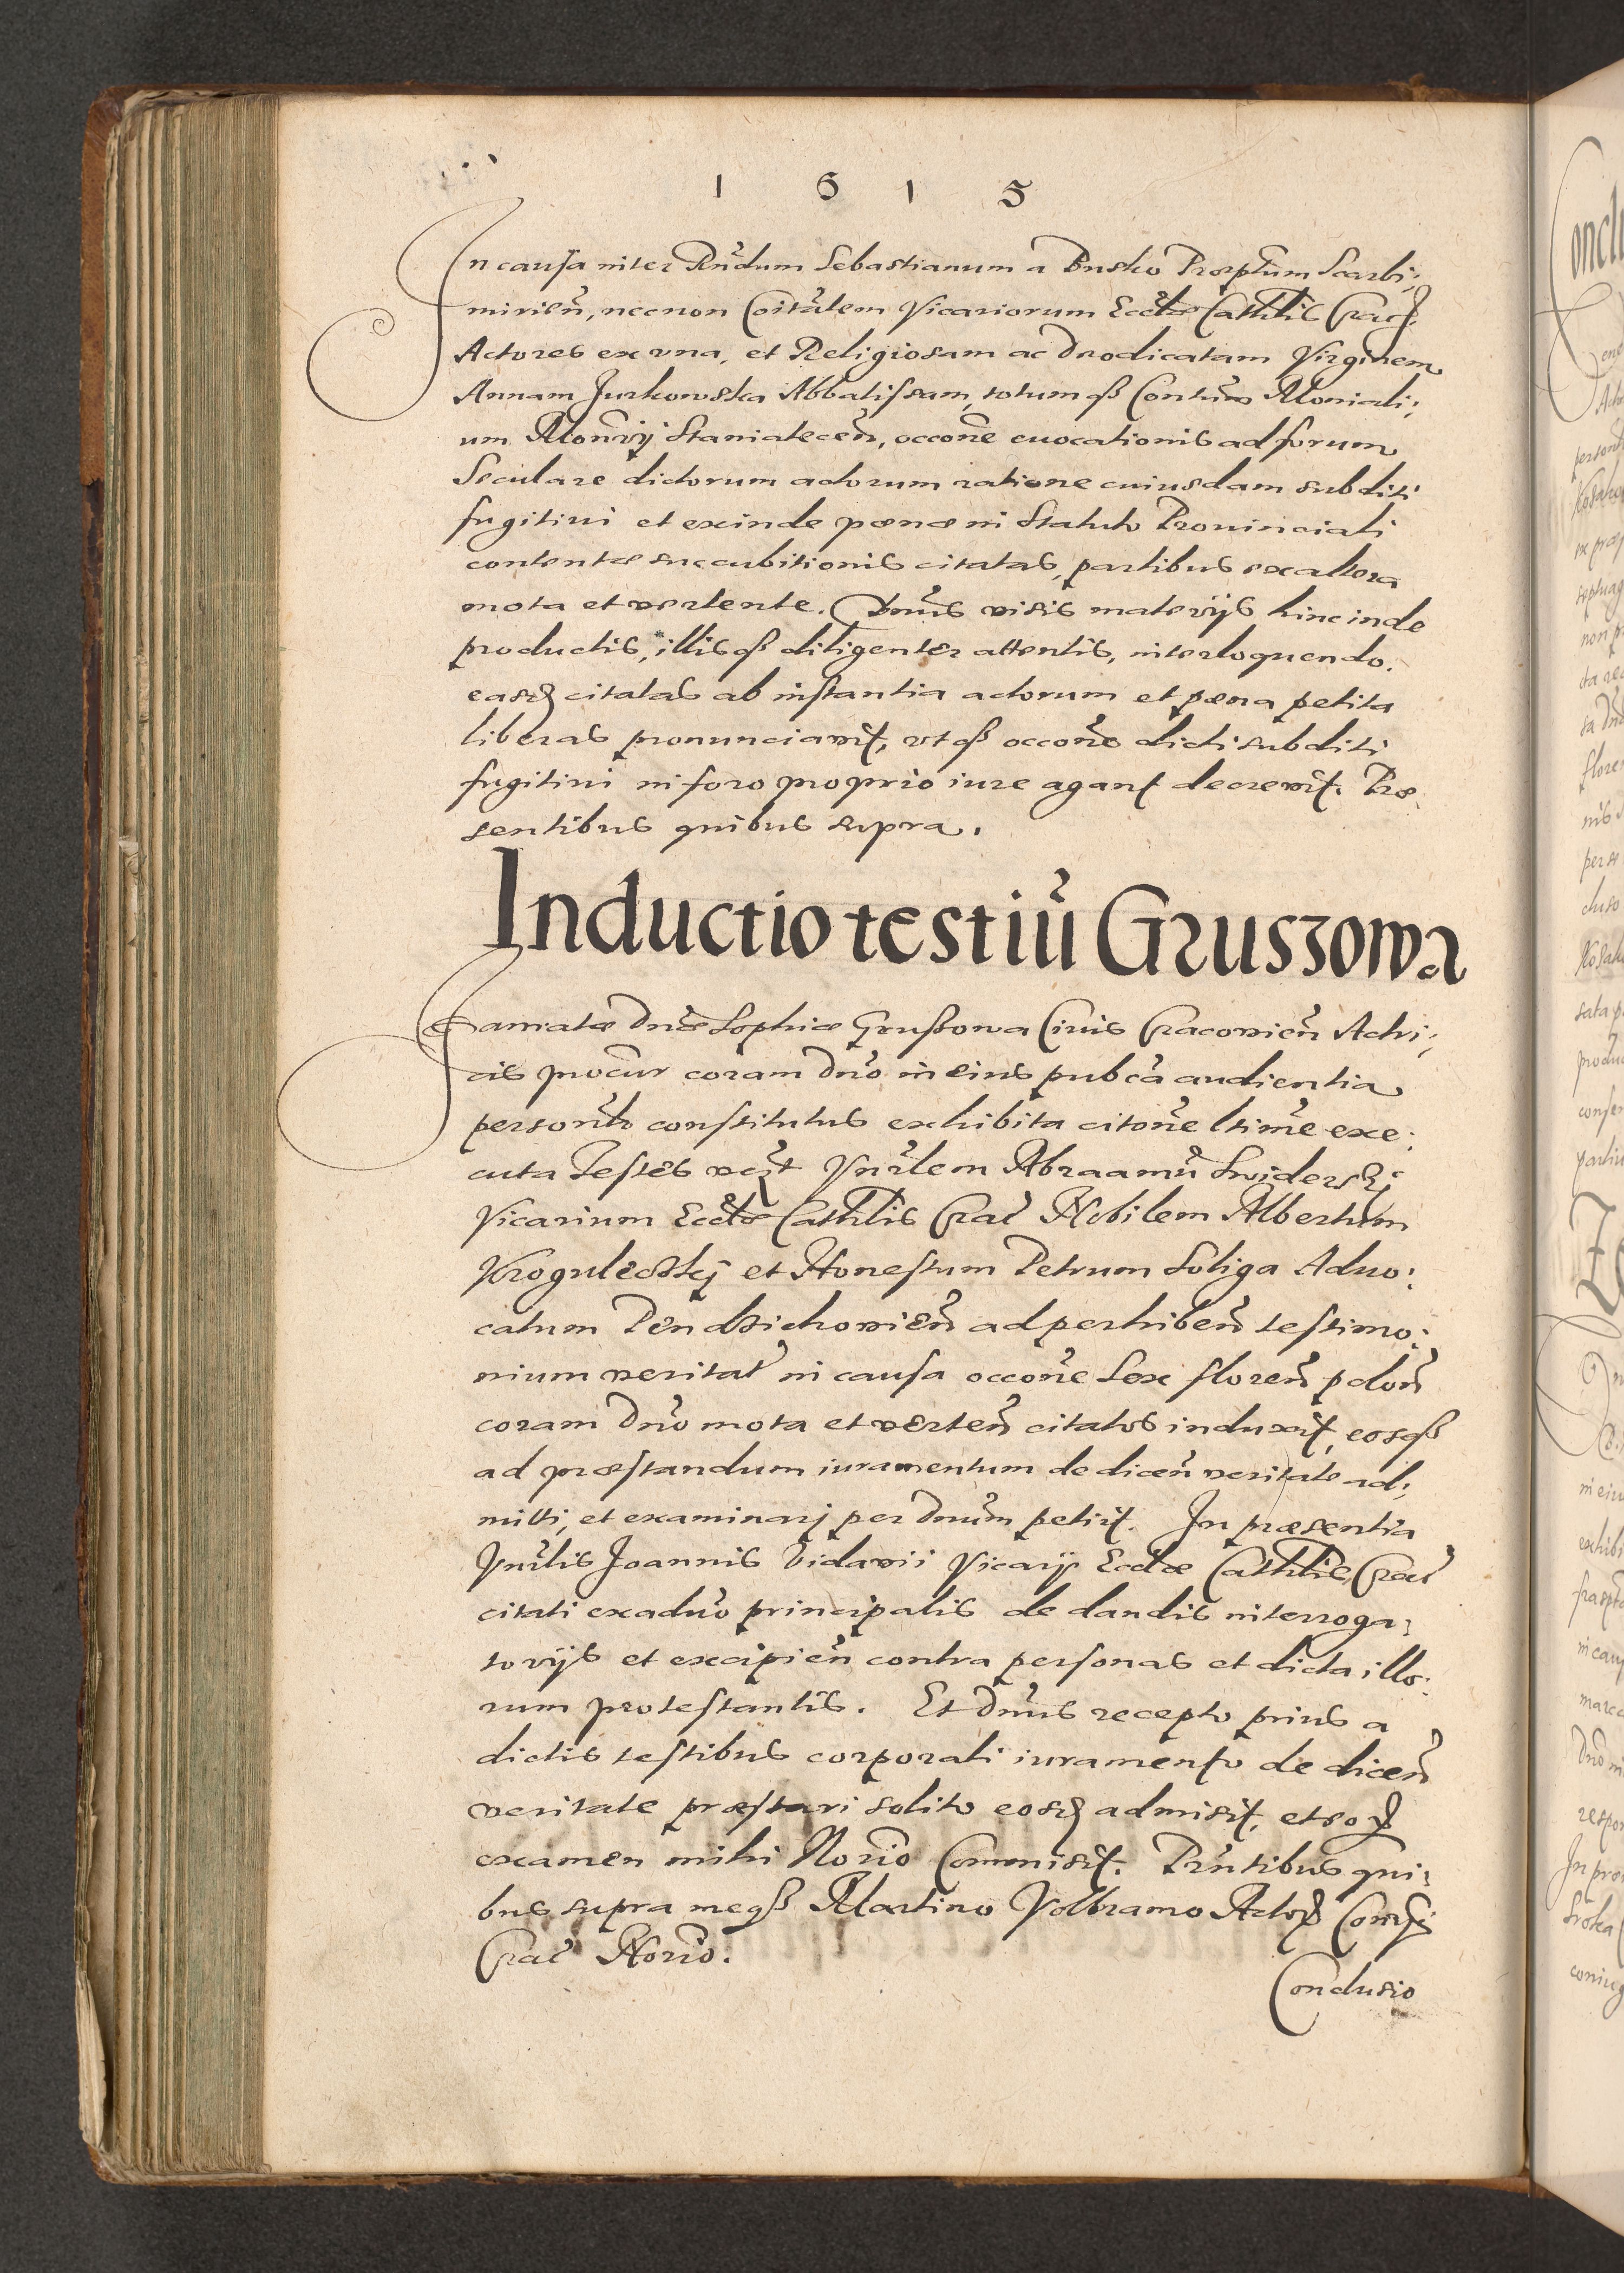 1 6 1 5
In causa inter Rndum Sebastianum a Busko Præptum Scarbi:
mirien, necnon Coitatem Vicariorum Ecclæ Cathlis Crac
Actores ex vna, et Religiosam ac Deodicatam Virginem
Annam Jurkowska Abbatissam, totumq3 Contum Moniali:
um Monrij Staniatecen, occone euocationis ad forum
Seculare dictorum actorum ratione cuiusdam subditi
fugitiui et exinde pœnæ in Statuto Prouinciali
contentæ succubitionis citatas, partibus ex altera
mota et vertente. Dnus visis materijs hinc inde
productis, illisq3 diligenter attentis, interloquendo.
easd citatas ab instantia actorum et pœna petita
liberas pronunciavit, vtq3 occone dicti subditi
fugitiui in foro proprio iure agant decrevit. Præ
sentibus quibus supra.
Inductio testiu Gruszowa
Famatæ Dnæ Sophiæ Grussowa Ciuis Cracovien Actri:
cis procur coram Dno in eius pubca audientia
personlr constitutus exhibita citone ltime exe:
cuta Testes vczt Vnrlem Abraamu Swiderskj
Vicarium Ecclæ Cathlis Crac Nobilem Albertum
Krogulecskj et Honestum Petrum Soliga Aduo:
catum Pendzichovien ad perhiben testimo:
nium veritat in causa occone Sex floren polon
coram Dno mota et verten citatos induxit, eosq3
ad præstandum iuramentum de dicen veritate ad:
mitti, et examinarj per Dnum petiit. In præsentia
Vnrlis Joannis Vidavii Vicarij Ecclæ Cathlis Crac
citati ex aduo principalis de dandis interroga:
torijs et excipien contra personas et dicta illo:
rum protestantis. Et Dnus recepto prius a
dictis testibus corporali iuramento de dicen
veritate præstari solito eosd admisit, et eor
examen mihi Norio Commisit. Prntibus qui:
bus supra meq3 Martino Volbramo Actor Consrij
Crac Norio.
Conclusio